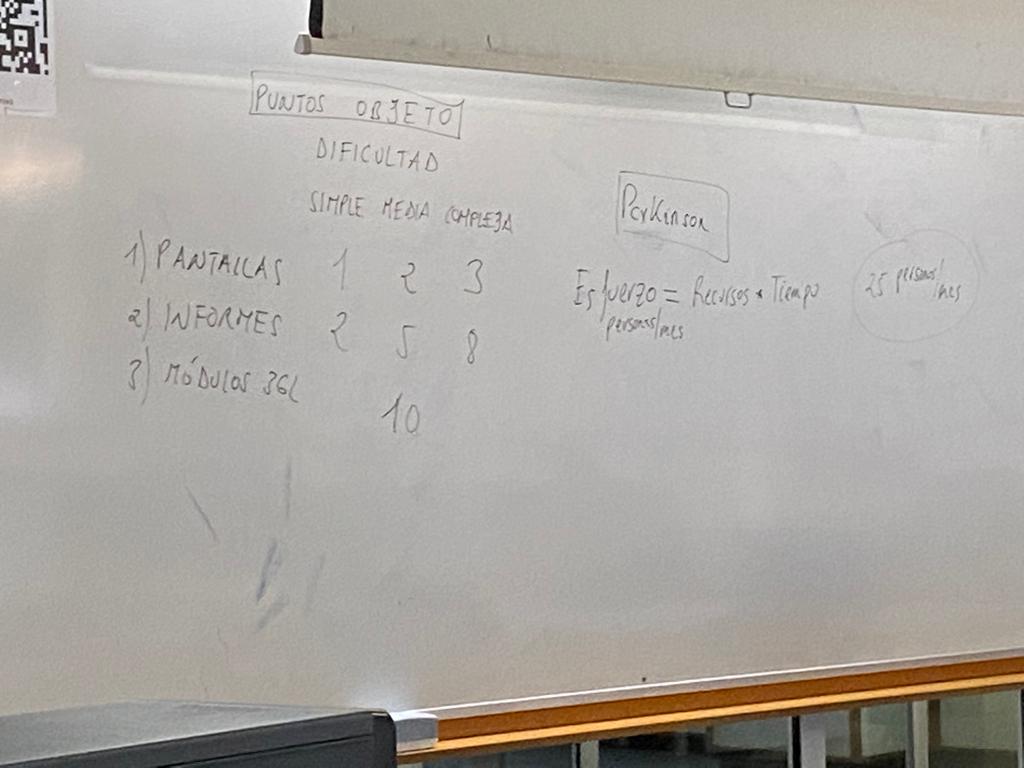 PUNTOS OBJETO
DIFICULTAD
SIMPLE MEDIA COMPLEJA
1) PANTALLAS 1 2 3
2) INFORMES 2 5 8
3) MÓDULOS 3GL
10
Parkinson
Esfuerzo = Recursos * Tiempo
personas/mes
25 personas/mes